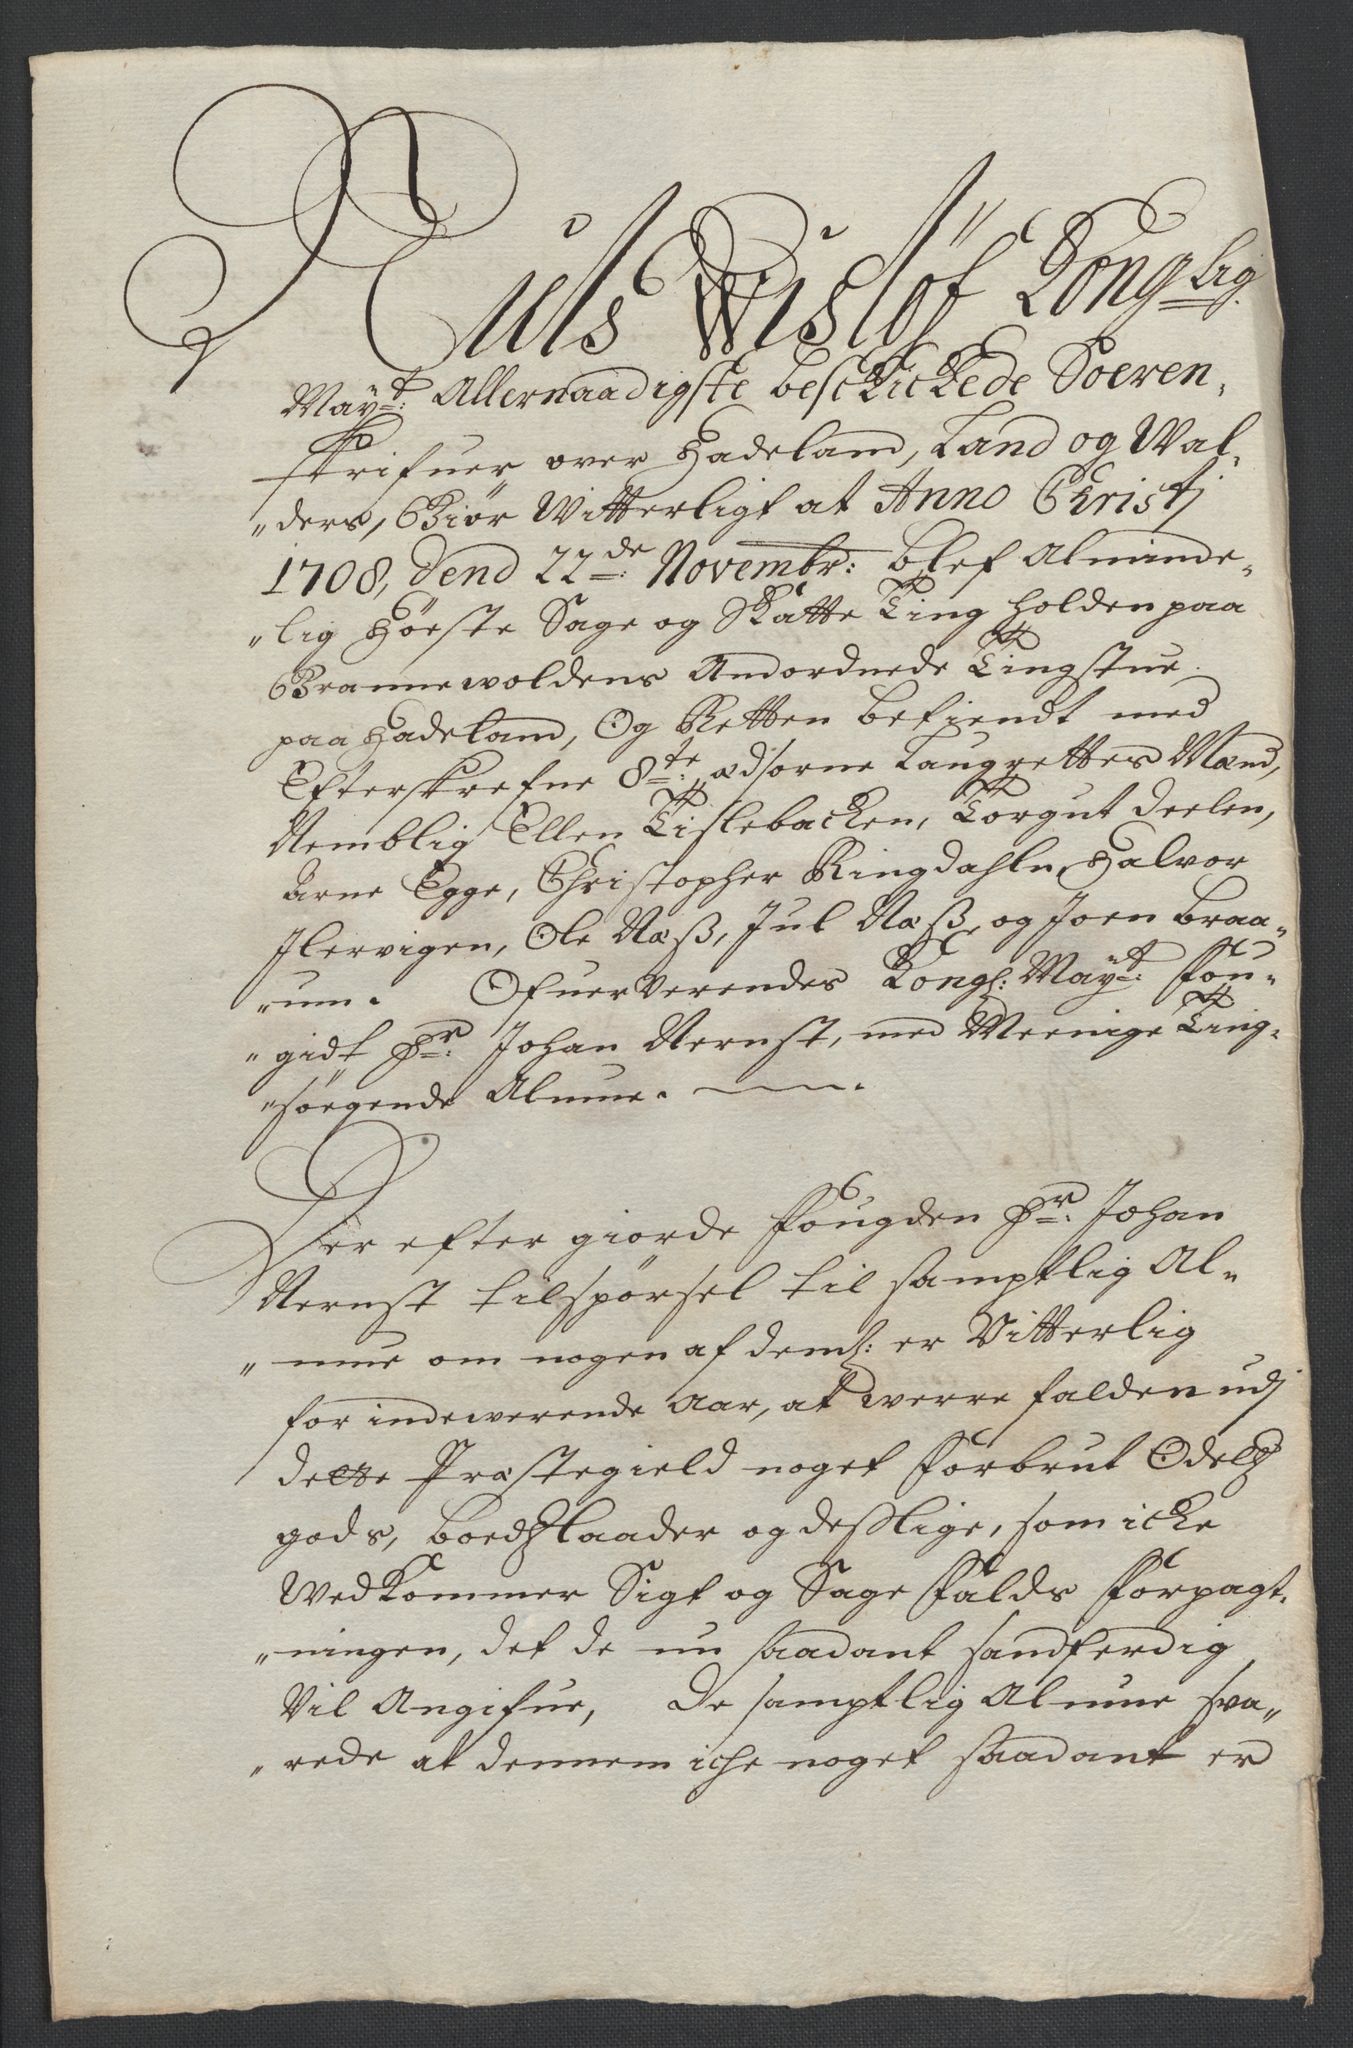 Auls Wislöf Konglig
Mayt: Allernaadigste beskickede Soeren„
skrifuer over Hadeland, Land og Wal„
„ders, Giør Witterligt at Anno Christi
1708, dend 22de: Novembr: blef Alminde„
„lig Höeste Sage og Skatte Ting holden paa
Grannewoldens Anordnede Tingstue
paa Hadeland, Og Retten betiendt med
Efterskrefne 8te: Edsorne Laugrettes Mænd,
Nemblig Ellen Tislebacken, Torgut deelen,
Arne Egge, Christopher Ringdahln, Halvor
Ilervigen, Ole Næß, Jul Næß, og Joen braa„
„um. Ofuerverendes Kongl: Mayt: fou„
„gidt Hr: Johan Nernst, med Meenige Ting„
„söegende Almue.
Der efter giorde fougden Hr: Johan
Nernst tilspörsel til samptlig Al„
„mue om nogen af deml: er Vitterlig
for indewerende Aar, at werre falden udj
dette Præstegield noget forbrut Odels
gods, boedslaader og deslige, som icke
Wedkommer Sigt og Sage falds forpagt„
„ningen, det de nu saadant sandferdig
Vil Angifue, De samptlig Almue sva„
„rede at dennem iche noget saadant er